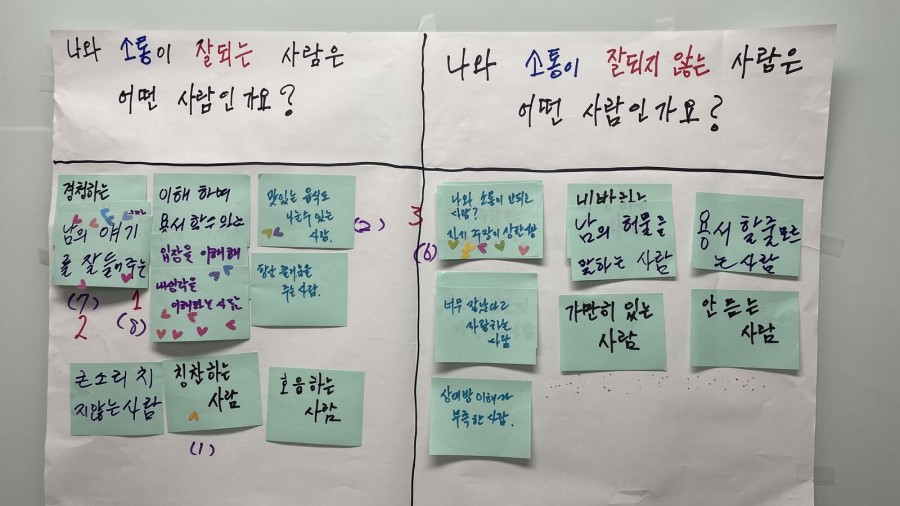 나와 소통이 잘되는 사람은
어떤 사람인가요?
경청하는
남의 얘기
를 잘들어주는
(7) 1
2 (8)
이해 하며
용서 할수 있는
입장을 이해해
내생각을
이해하는 사람
맛있는 음식도
나눌수 있는
사람.
(2)
항상 즐거움을
주는 사람.
큰소리 치
지않는 사람
칭찬하는
사람
(1)
호응하는
사람
나와 소통이 잘되지 않는 사람은
어떤 사람인가요?
3
(6)
나와 소통이 안되는
사람?
자기 주장이 강한 사람
너무 잘난다고
자랑하는
사람
상대방 이해가
부족한 사람.
남의 허물을
말하는 사람
가만히 있는
사람
용서 할줄 모르
는 사람
안 듣는
사람